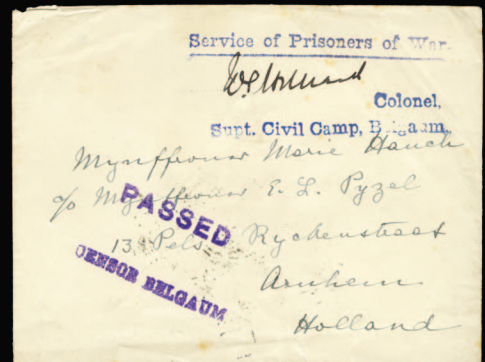 Service of Prisoners of War.
Colonel,
Supt. Civil Camp, Belgaum.
Mynffrouw Marie Hauch
c/o Mynffrouw E. L. Pyzel
PASSED
13 Pels Ryckenstraat
CENSOR BELGAUM
Arnhem
Holland